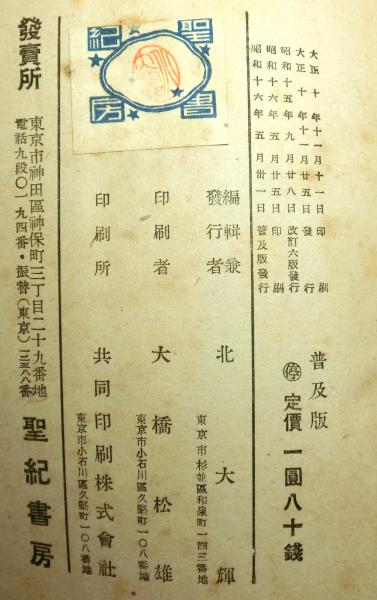 普及版
㊝定價一圓八十錢
大正十年十一月十一日印刷
大正十年十一月廿五日發行
昭和十五年九月廿八日改訂六版發行
昭和十六年五月廿五日印刷
昭和十六年五月卅一日普及版發行
編輯兼發行者 北大輝
東京市杉並區和泉町一四三番地
印刷者 大橋松雄
東京市小石川區久堅町一〇八番地
印刷所 共同印刷株式會社
東京市小石川區久堅町一〇八番地
聖紀書房
發賣所 東京市神田區神保町三丁目二十九番地 聖紀書房
電話九段〇一九四番・振替(東京)三五八八番